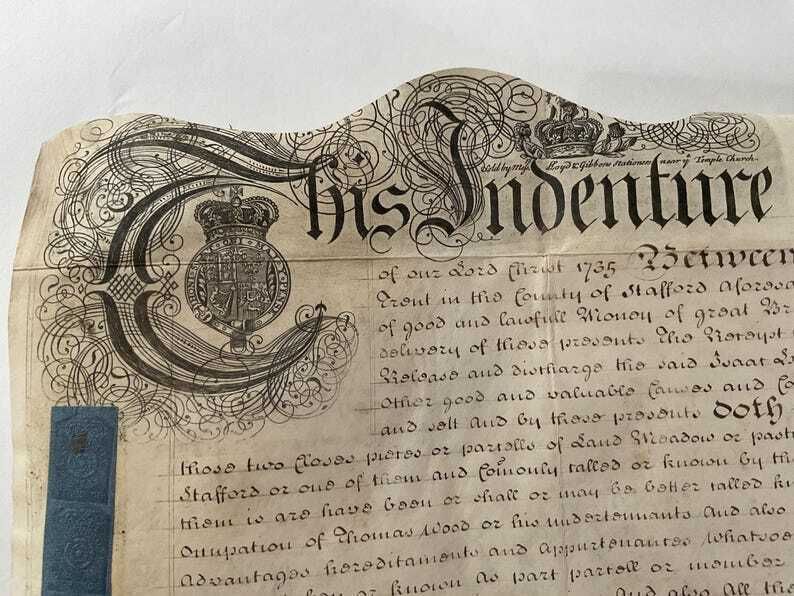 This Indenture
Sold by Mess. Lloyd & Gibbons Stationers near yᵉ Temple Church.
HONI SOIT QUI MAL Y PENSE
of our Lord Christ 1735 Between
Trent in the County of Stafford aforesa
of good and lawfull Money of great Br
delivery of these presents The Receipt
Release and discharge the said Isaac
Other good and valuable Causes and Co
and sell And by these presents doth
those two Closes pieces or parcells of Land Meadow or past
Stafford or one of them and Comonly called or known by th
them is are have been or shall or may be better called k
Occupation of Thomas Wood or his undertennants And also
Advantages hereditaments and Appurtenances Whatsoe
or known as part parcell or member
And also All the